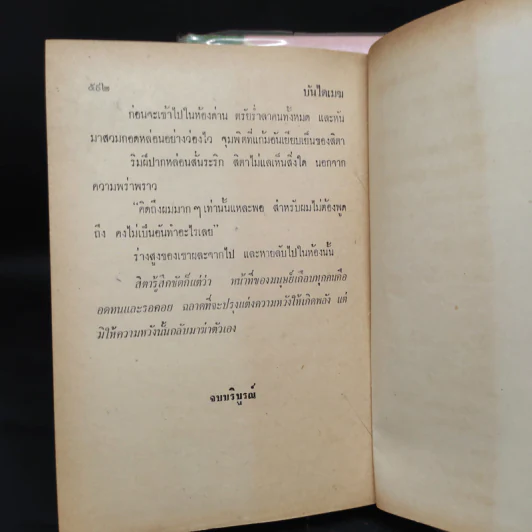 ๕๙๒ บันไดเมฆ
ก่อนจะเข้าไปในห้องด่าน ตรัยร่ำลาคนทั้งหมด และหัน
มาสวมกอดหล่อนอย่างว่องไว จุมพิตที่แก้มอันเยียบเย็นของสิตา
ริมฝีปากหล่อนสั่นระริก สิตาไม่แลเห็นสิ่งใด นอกจาก
ความพร่าพราว
“คิดถึงผมมาก ๆ เท่านั้นแหละพอ สำหรับผมไม่ต้องพูด
ถึง คงไม่เป็นอันทำอะไรเลย”
ร่างสูงของเขาผละจากไป และหายลับไปในห้องนั้น
สิตารู้สึกชัดก็แต่ว่า หน้าที่ของมนุษย์เกือบทุกคนคือ
อดทนและรอคอย ฉลาดที่จะปรุงแต่งความหวังให้เกิดพลัง แต่
มิให้ความหวังนั้นกลับมาฆ่าตัวเอง
จบบริบูรณ์